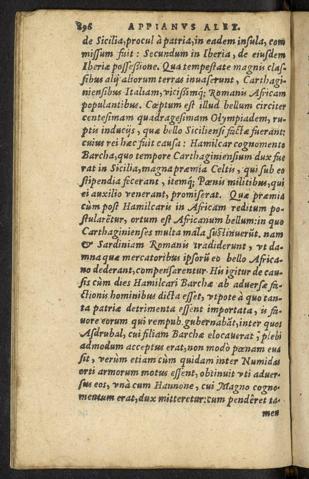 896 APPIANVS ALEX.
de Sicilia, procul à patria, in eadem insula, com
missum fuit: Secundum in Iberia, de eiusdem
Iberiæ possessione. Qua tempestate magnis clas
sibus alij aliorum terras inuaserunt, Carthagi-
niensibus Italiam, vicissimq; Romanis Africam
populantibus. Cœptum est illud bellum circiter
centesimam quadragesimam Olympiadem, ru-
ptis inducijs, quæ bello Siciliensi factæ fuerant:
cuius rei hæc fuit causa: Hamilcar cognomento
Barcha, quo tempore Carthaginensium dux fue
rat in Sicilia, magna præmia Celtis, qui sub eo
stipendia fecerant, itemq; Pœnis militibus, qui
ei auxilio venerant, promiserat. Quæ præmia
cùm post Hamilcaris in Africam reditum po-
stularētur, ortum est Africanum bellum: in quo
Carthaginienses multa mala sustinuerūt. nam
& Sardiniam Romanis tradiderunt, vt da-
mna quæ mercatoribus ipsorū eo bello Africa-
no dederant, compensarentur. His igitur de cau-
sis cùm dies Hamilcari Barchæ ab aduersæ fa-
ctionis hominibus dicta esset, vtpote à quo tan-
ta patriæ detrimenta essent importata, is fa-
uore eorum qui rempub. gubernabāt, inter quos
Asdrubal, cui filiam Barcha elocauerat, plebi
admodum acceptus erat, non modò pœnam eua
sit, verùm etiam cùm quidam inter Numidas
orti armorum motus essent, obtinuit vti aduer-
sus eos, vnà cum Hannone, cui Magno cogno-
mentum erat, dux mitteretur: cum penderet ta-
men